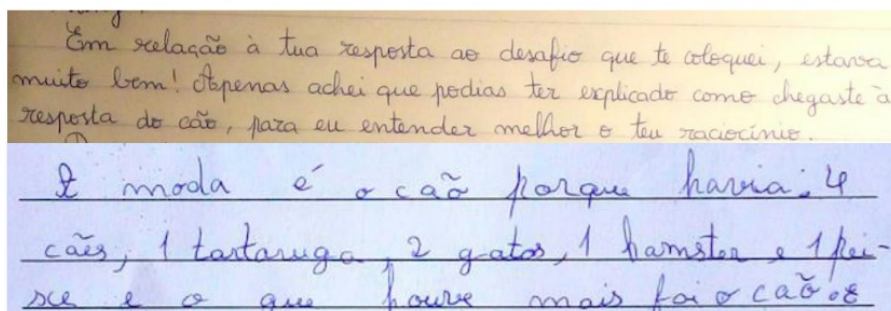 Em relação à tua resposta ao desafio que te coloquei, estava
muito bem! Apenas achei que podias ter explicado como chegaste à
resposta do cão, para eu entender melhor o teu raciocínio.
A moda é o cão porque havia: 4
cães, 1 tartaruga, 2 gatos, 1 hamster e 1 pei-
sce e o que houve mais foi o cão.